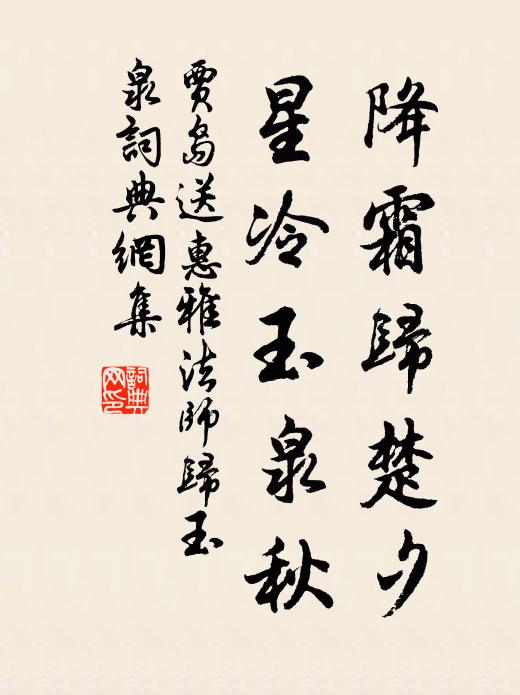 降霜歸楚夕
星冷玉泉秋
賈島送惠雅法師歸玉
泉詞典網集
詞典网印